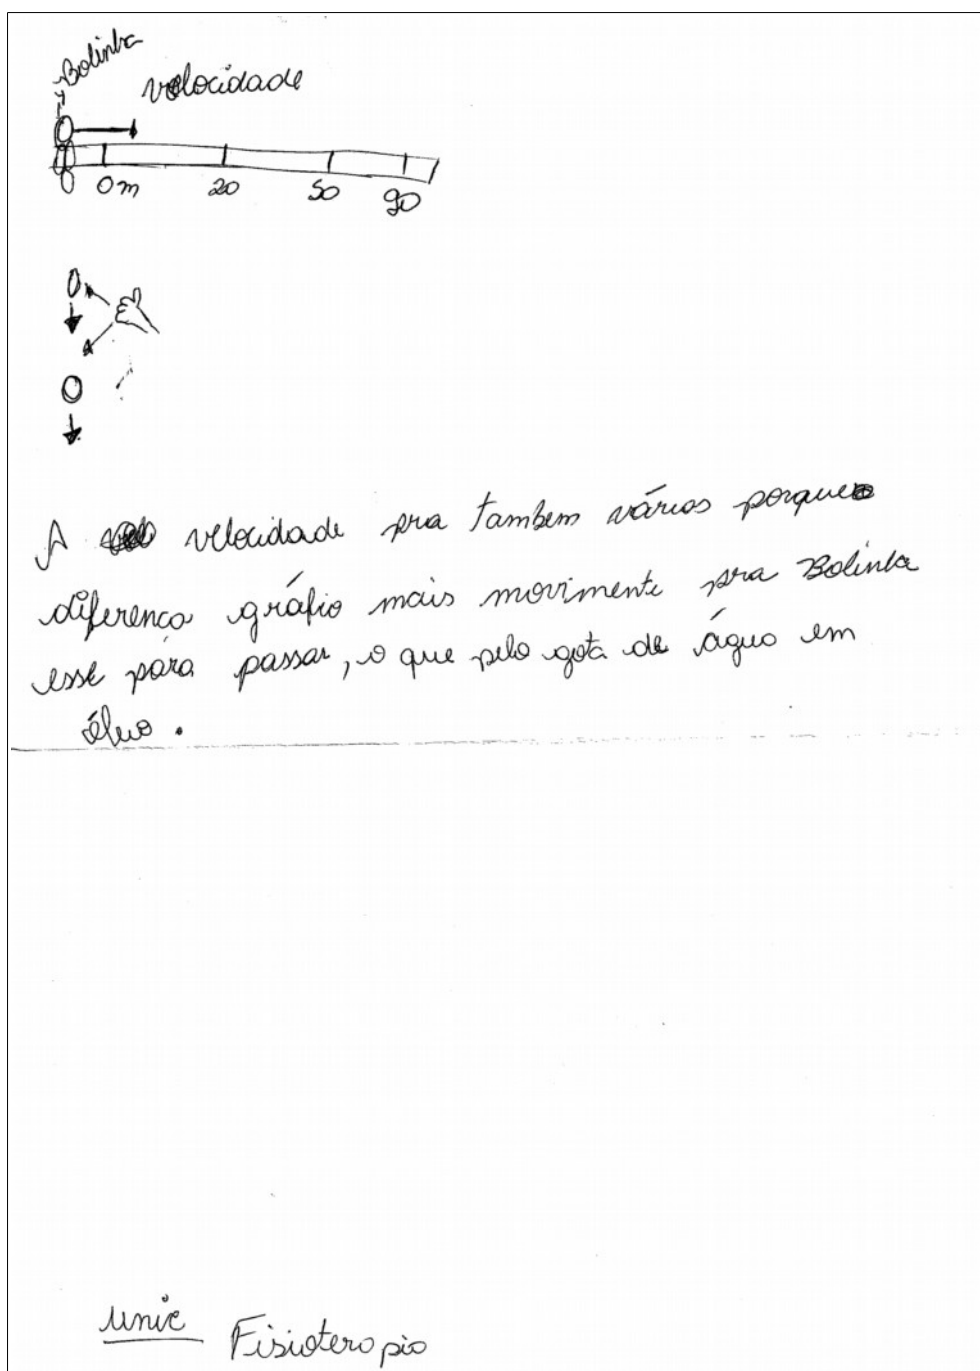 Bolinha
velocidade
0m 20 50 90
A velocidade pra tambem vários porque
diferença gráfio mais movimente pra Bolinha
esse pára passar, o que pelo gota de água em
Fisioterapia